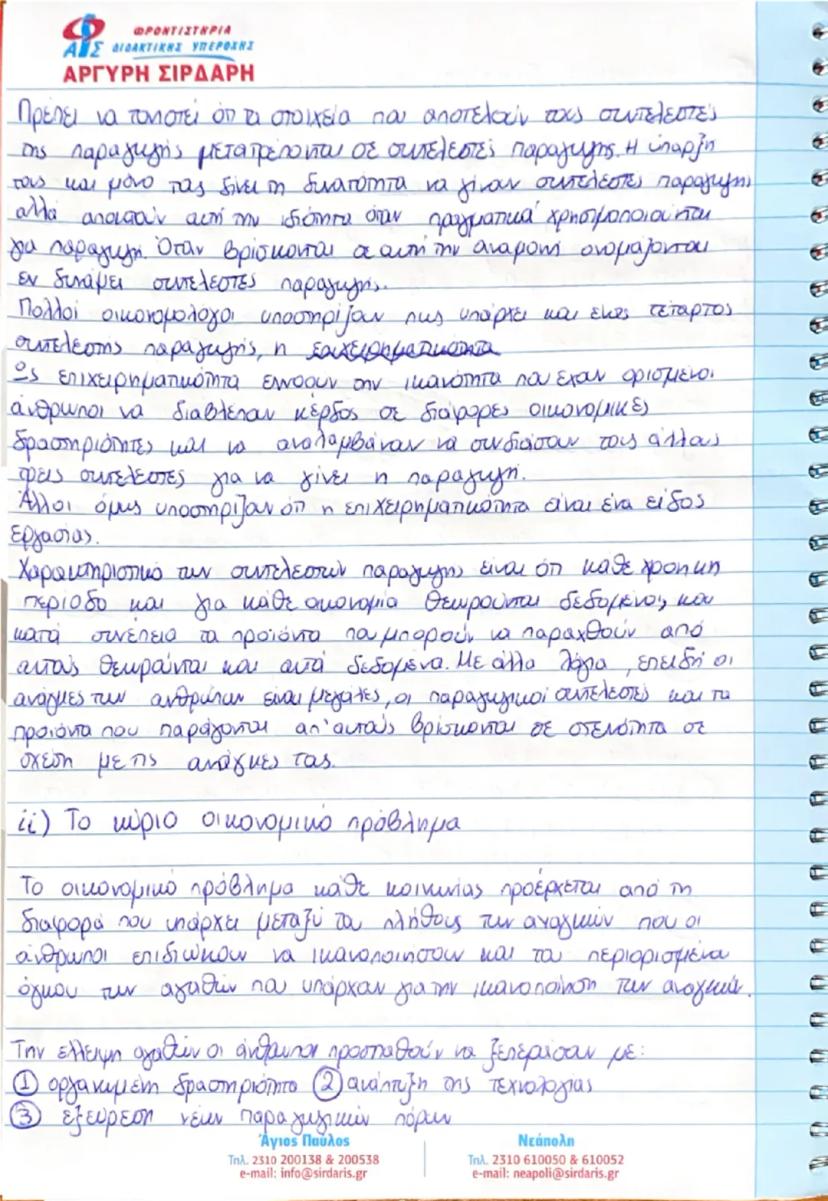 ΦΡΟΝΤΙΣΤΗΡΙΑ
ΔΙΔΑΚΤΙΚΗΣ ΥΠΕΡΟΧΗΣ
ΑΡΓΥΡΗ ΣΙΡΔΑΡΗ
Πρέπει να τονιστεί ότι τα στοιχεία που αποτελούν τους συντελεστές
της παραγωγής μετατρέπονται σε συντελεστές παραγωγής. Η ύπαρξη
τους και μόνο τους δίνει τη δυνατότητα να γίνουν συντελεστές παραγωγής
αλλά αποκτούν αυτή την ιδιότητα όταν πραγματικά χρησιμοποιούνται
για παραγωγή. Όταν βρίσκονται σε αυτή την αναμονή ονομάζονται
εν δυνάμει συντελεστές παραγωγής.
Πολλοί οικονομολόγοι υποστηρίζουν πως υπάρχει και ένας τέταρτος
συντελεστής παραγωγής, η επιχειρηματικότητα
Ως επιχειρηματικότητα εννοούν την ικανότητα που έχουν ορισμένοι
άνθρωποι να διαβλέπουν κέρδος σε διάφορες οικονομικές
δραστηριότητες και να αναλαμβάνουν να συνδιάσουν τους άλλους
τρεις συντελεστές για να γίνει η παραγωγή.
Άλλοι όμως υποστηρίζουν ότι η επιχειρηματικότητα είναι ένα είδος
εργασίας.
Χαρακτηριστικό των συντελεστών παραγωγής είναι ότι κάθε χρονική
περίοδο και για κάθε οικονομία θεωρούνται δεδομένοι, και
κατά συνέπεια τα προϊόντα που μπορούν να παραχθούν από
αυτούς θεωρούνται και αυτά δεδομένα. Με άλλα λόγια, επειδή οι
ανάγκες των ανθρώπων είναι μεγάλες, οι παραγωγικοί συντελεστές και τα
προϊόντα που παράγονται απ' αυτούς βρίσκονται σε στενότητα σε
σχέση με τις ανάγκες τους.
ii) Το κύριο οικονομικό πρόβλημα
Το οικονομικό πρόβλημα κάθε κοινωνίας προέρχεται από τη
διαφορά που υπάρχει μεταξύ του πλήθους των αναγκών που οι
άνθρωποι επιδιώκουν να ικανοποιήσουν και του περιορισμένου
όγκου των αγαθών που υπάρχουν για την ικανοποίηση των αναγκών.
Την έλλειψη αγαθών οι άνθρωποι προσπαθούν να ξεπεράσουν με:
① οργανωμένη δραστηριότητα ② ανάπτυξη της τεχνολογίας
③ εξεύρεση νέων παραγωγικών πόρων
Άγιος Παύλος Νεάπολη
Τηλ. 2310 200138 & 200538 Τηλ. 2310 610050 & 610052
e-mail: info@sirdaris.gr e-mail: neapoli@sirdaris.gr